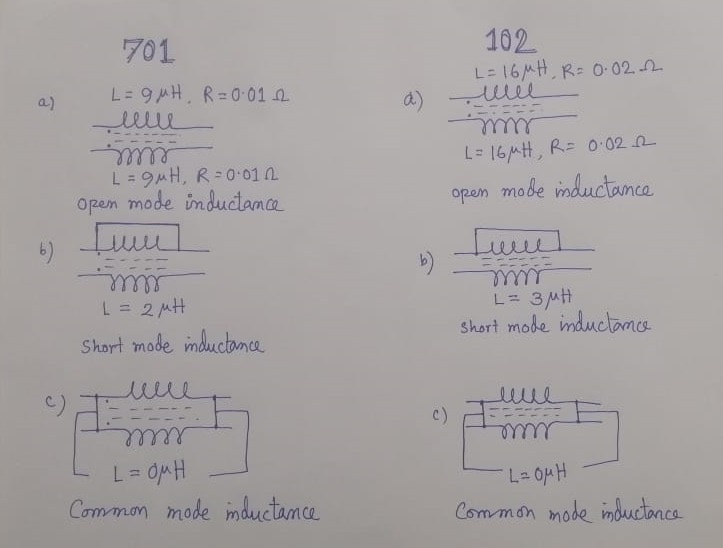 701
a)
L = 9 μH, R = 0.01 Ω
L = 9 μH, R = 0.01 Ω
open mode inductance
b)
L = 2 μH
Short mode inductance
c)
L = 0 μH
Common mode inductance
102
a)
L = 16 μH, R = 0.02 Ω
L = 16 μH, R = 0.02 Ω
open mode inductance
b)
L = 3 μH
short mode inductance
c)
L = 0 μH
Common mode inductance